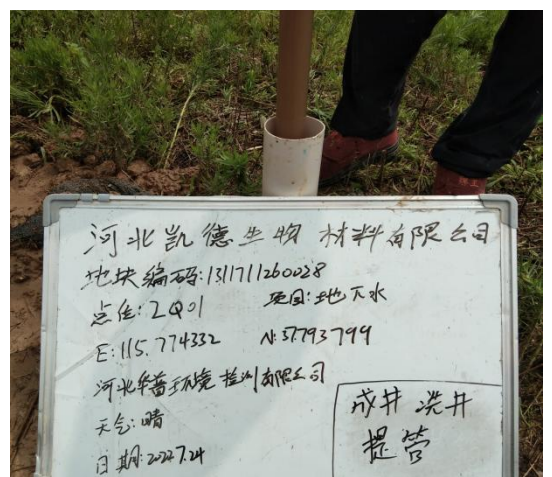 河北凯德生物材料有限公司
地块编码:1311711260028
点位:ZQ01 项目:地下水
E:115.774332 N:37.793799
河北华普环境检测有限公司
天气:晴
日期:2022.7.24
成井 洗井
提管